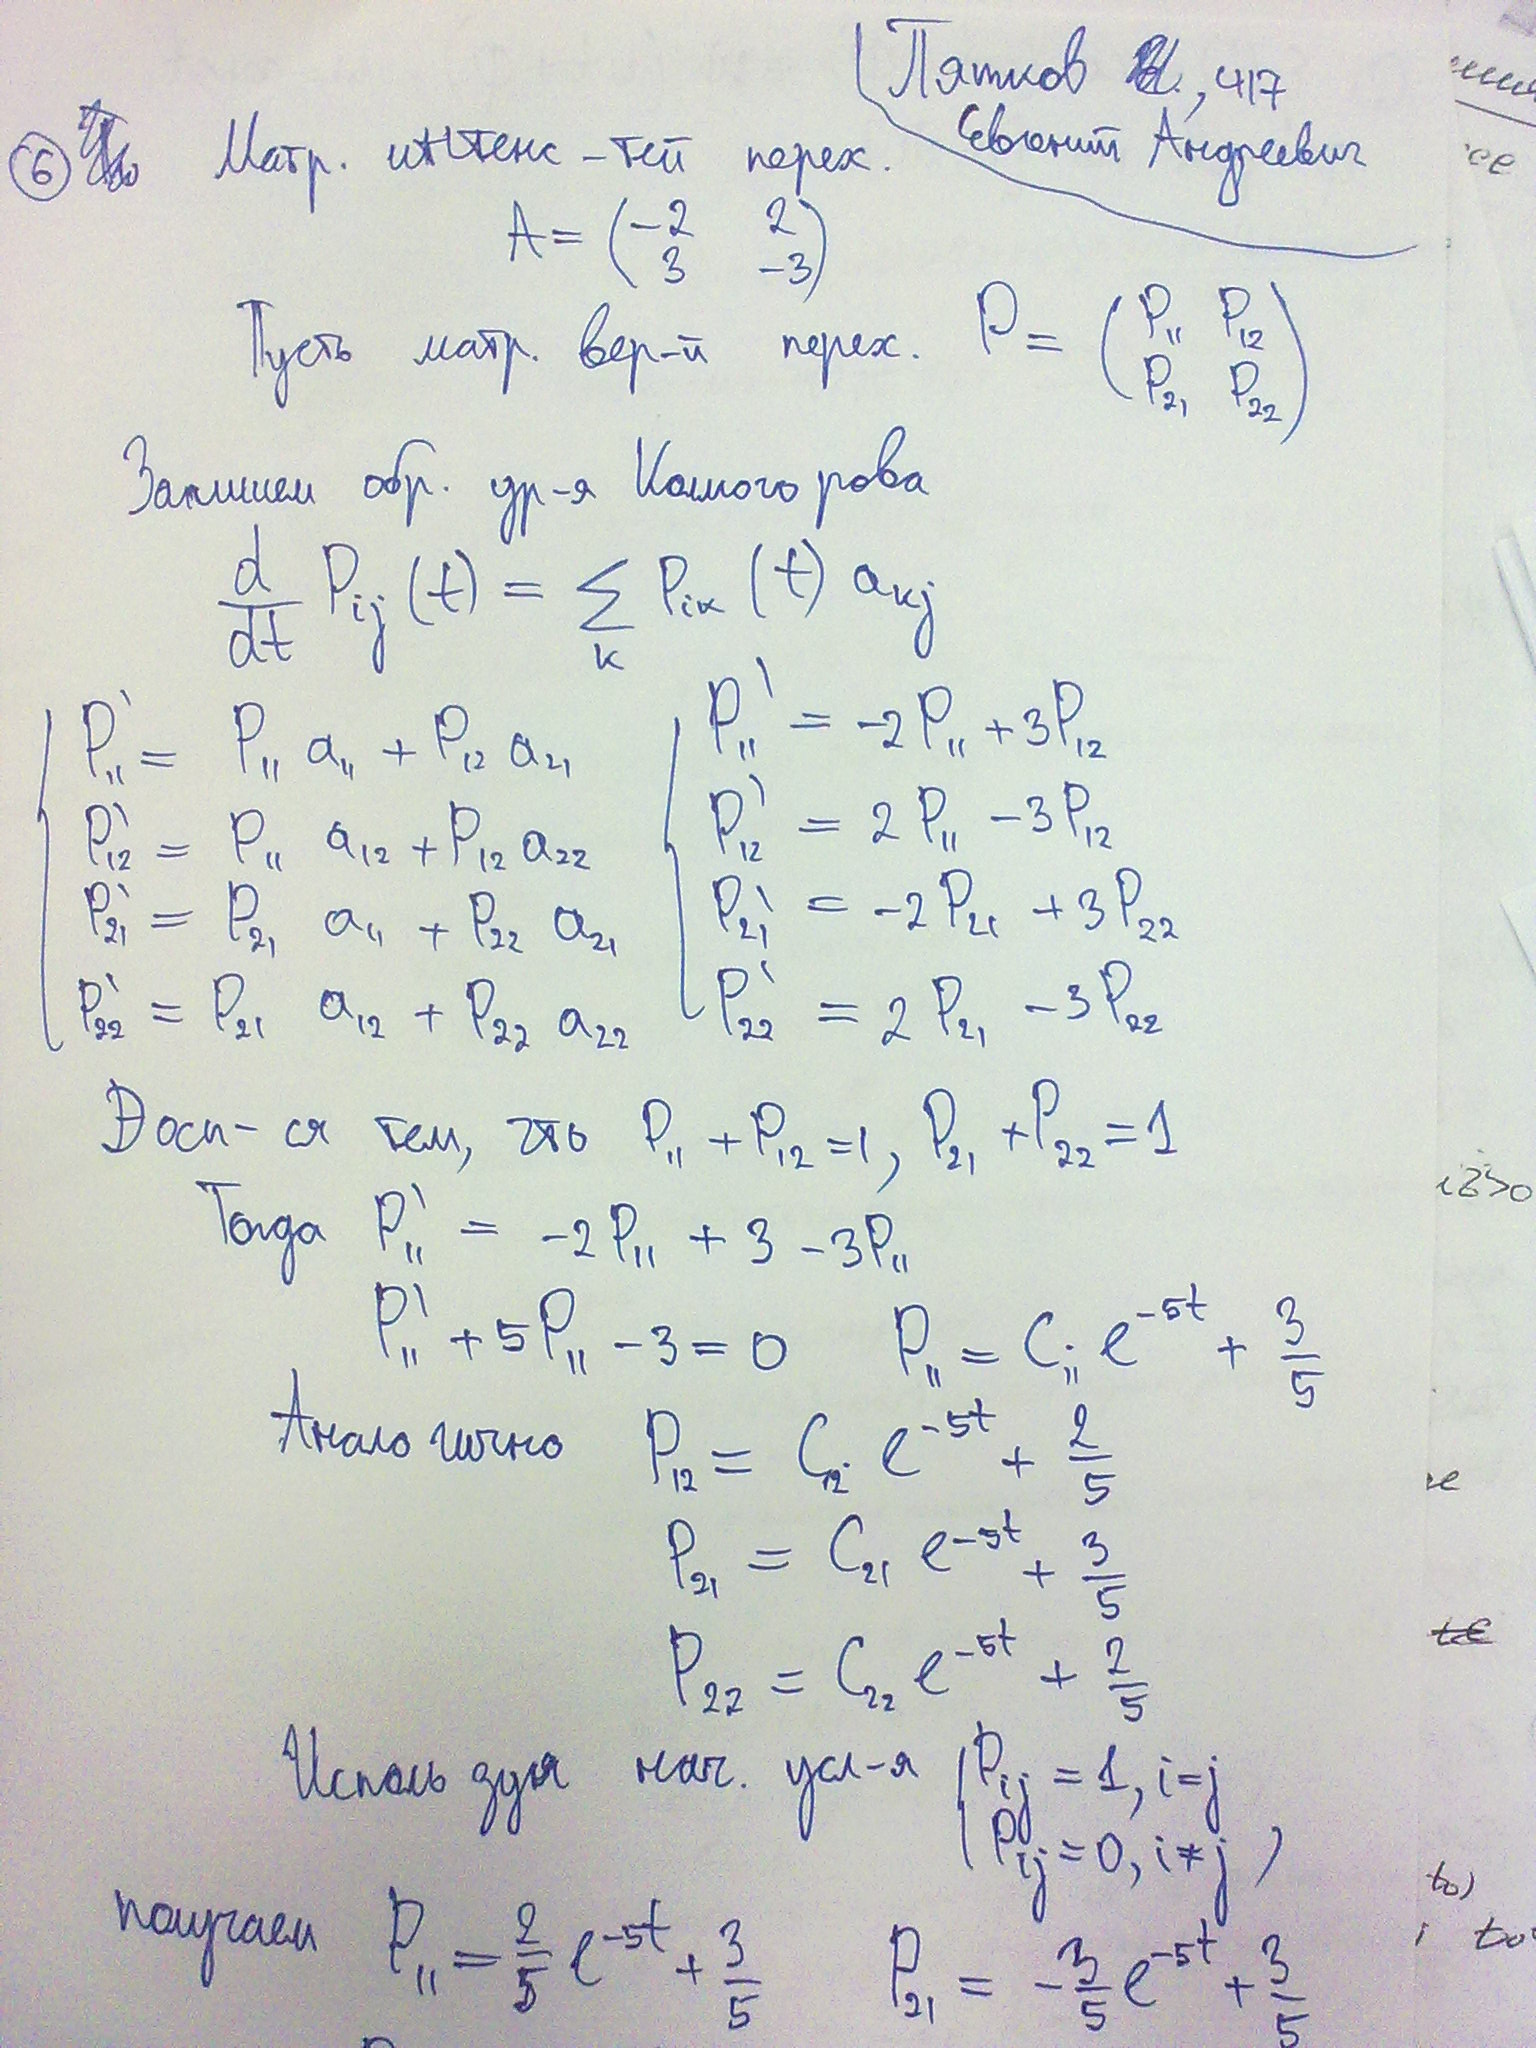 Пятков Е., 417
Евгений Андреевич
6 Матр. интенс-тей перех.
A = (-2 2
3 -3)
Пусть матр. вер-й перех. P = (P₁₁ P₁₂
P₂₁ P₂₂)
Запишем обр. ур-я Колмогорова
d/dt Pᵢⱼ(t) = ∑ₖ Pᵢₖ(t) aₖⱼ
P₁₁' = P₁₁ a₁₁ + P₁₂ a₂₁
P₁₂' = P₁₁ a₁₂ + P₁₂ a₂₂
P₂₁' = P₂₁ a₁₁ + P₂₂ a₂₁
P₂₂' = P₂₁ a₁₂ + P₂₂ a₂₂
P₁₁' = -2P₁₁ + 3P₁₂
P₁₂' = 2P₁₁ - 3P₁₂
P₂₁' = -2P₂₁ + 3P₂₂
P₂₂' = 2P₂₁ - 3P₂₂
Восп-ся тем, что P₁₁ + P₁₂ = 1, P₂₁ + P₂₂ = 1
Тогда P₁₁' = -2P₁₁ + 3 - 3P₁₁
P₁₁' + 5P₁₁ - 3 = 0 P₁₁ = C₁₁ e^(-5t) + 3/5
Аналогично P₁₂ = C₁₂ e^(-5t) + 2/5
P₂₁ = C₂₁ e^(-5t) + 3/5
P₂₂ = C₂₂ e^(-5t) + 2/5
Используя нач. усл-я { Pᵢⱼ = 1, i = j
Pᵢⱼ = 0, i ≠ j ,
получаем P₁₁ = 2/5 e^(-5t) + 3/5 P₂₁ = -3/5 e^(-5t) + 3/5